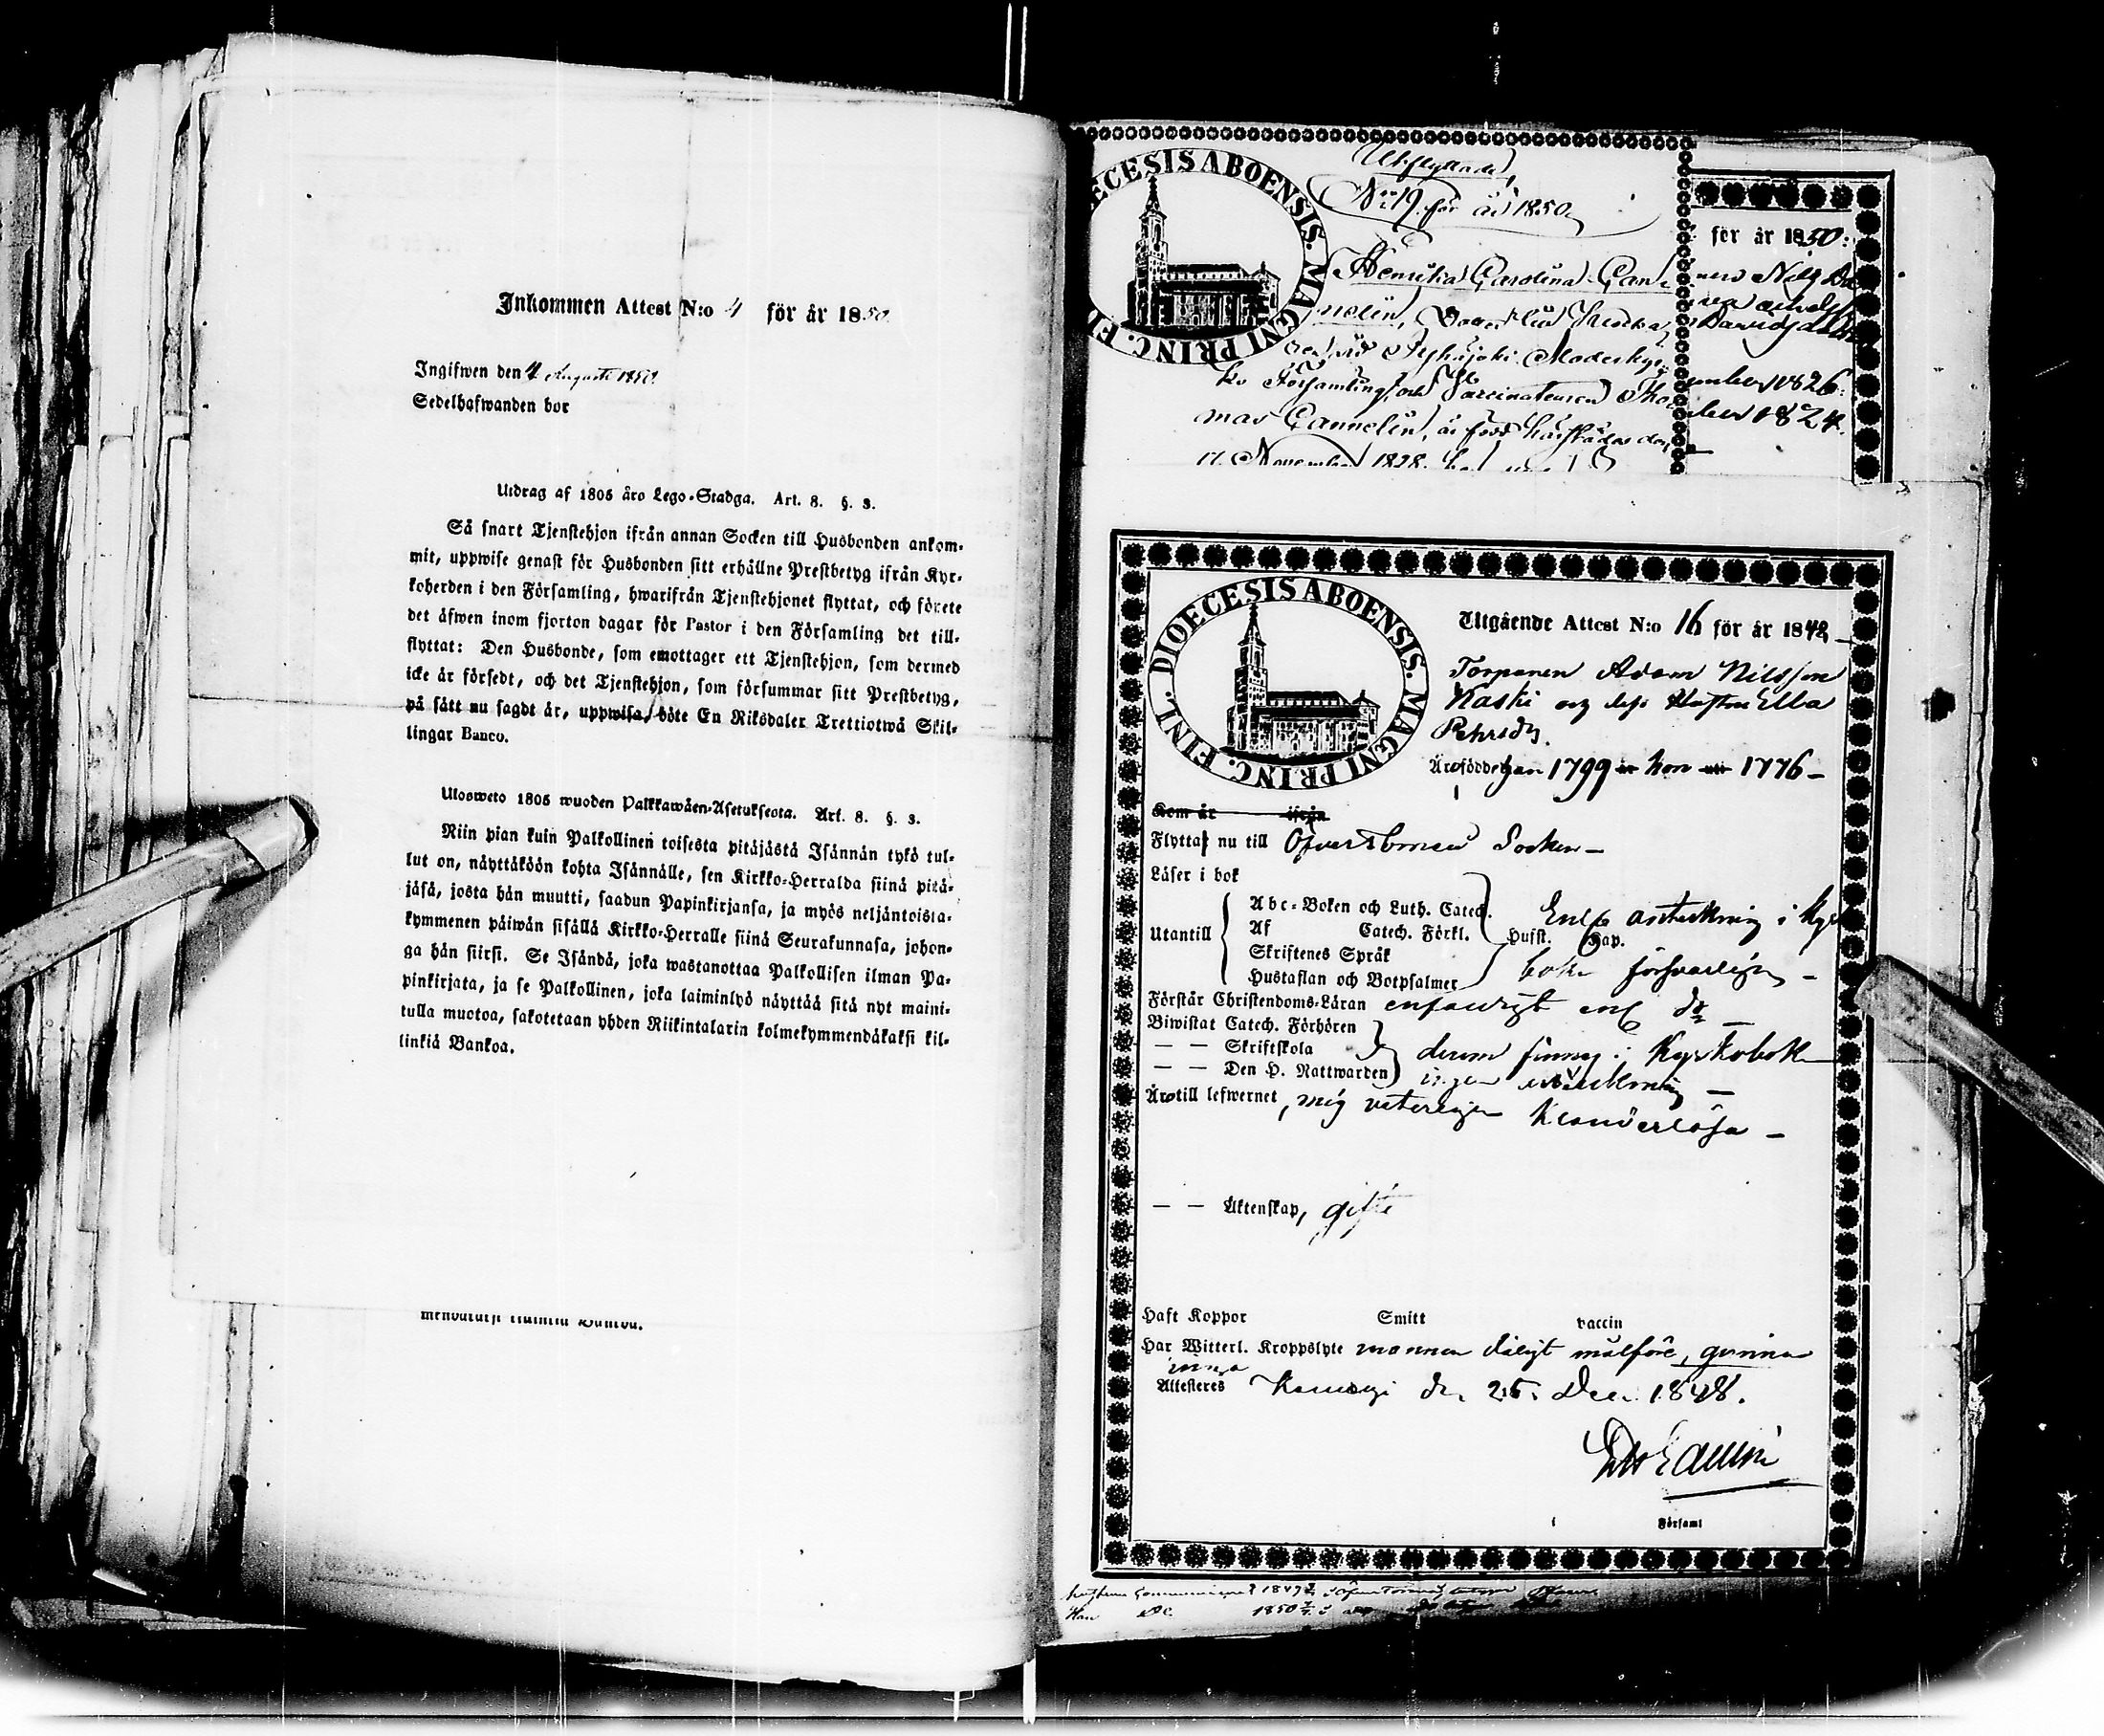 Inkommen Attest N:o 4 för år 1850.
Ingifwen den 4 Augusti 1850
Sedelhafwanden bor
Utdrag af 1805 års Lego-Stadga. Art. 8. §. 3.
Så snart Tjenstehjon ifrån annan Socken till Husbonden ankom-
mit, uppwise genast för Husbonden sitt erhållne Prestbetyg ifrån Kyr-
koherden i den Församling, hwarifrån Tjenstehjonet flyttat, och förete
det äfwen inom fjorton dagar för Pastor i den Församling det till-
flyttat: Den Husbonde, som emottager ett Tjenstehjon, som dermed
icke är försedt, och det Tjenstehjon, som försummar sitt Prestbetyg,
på sätt nu sagdt är, uppwisa, böte En Riksdaler Trettiotwå Skil-
lingar Banco.
Ulosweto 1805 wuoden Palkkawäen-Asetuksesta. Art. 8. §. 3.
Niin pian kuin Palkollinen toisesta pitäjästä Isännän tykö tul-
lut on, näyttäköön kohta Isännälle, sen Kirkko-Herralda siinä pitä-
jäsä, josta hän muutti, saadun Papinkirjansa, ja myös neljäntoista-
kymmenen päiwän sisällä Kirkko-Herralle siinä Seurakunnasa, johon-
ga hän siirsi. Se Isändä, joka wastanottaa Palkollisen ilman Pa-
pinkirjata, ja se Palkollinen, joka laiminlyö näyttää sitä nyt maini-
tulla muotoa, sakotetaan yhden Riikintalarin kolmekymmendäkaksi kil-
linkiä Bankoa.
DIOECESIS ABOENSIS. MAGNI PRINC. FI
Utflyttade,
N:o 19. för år 1850,
Henrika Carolina Can-
nelin,
Pyhäjoki Moderkyr-
ko Församling, och Vaccinateuren Tho-
mas Cannelin, är född härstädes den
17 November 1828.
för år 1850:
Nils
Davidsdotter
ember 1826.
ber 1824.
DIOECESIS ABOENSIS. MAGNI PRINC. FINL.
Utgående Attest N:o 16 för år 1848
Torparen Adam Nilsson
Kaski och dess Hustru Ella
Pehrsdr.
Äro födde han 1799 hon 1776 –
Kom år ifrån
Flyttat nu till Öfvertorneå Socken –
Läser i bok
Utantill
Abc-Boken och Luth. Catech.
Af Catech. Förkl. Hufst. Cap.
Skriftenes Språk
Hustaflan och Botpsalmer
Enl anteckning i Kyr
boken försvarligen –
Förstår Christendoms-Läran enfaldigt enl do –
Biwistat Catech. Förhören
— — Skriftskola
— — Den H. Nattwarden
derom finnes i Kyrkobok
ingen anteckning –
Äro till lefwernet, mig veterligen klanderlösa –
— — Äktenskap, gifte
Haft Koppor Smitt vaccin
Har Witterl. Kroppslyte mannen dåligt målföre, qvinnan
inga
Attesteres den 25 Dec. 1848.
i Församl
1849
Han 1850